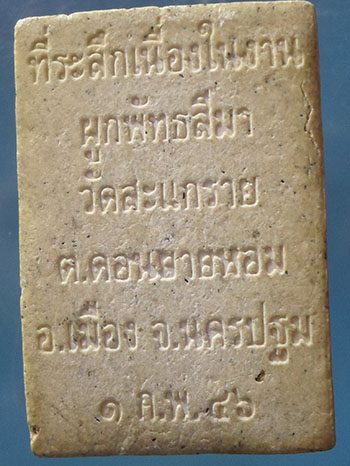 ที่ระลึกเนื่องในงาน
ผูกพัทธสีมา
วัดสะแกราย
ต.ดอนยายหอม
อ.เมือง จ.นครปฐม
๑ ก.พ. ๔๖